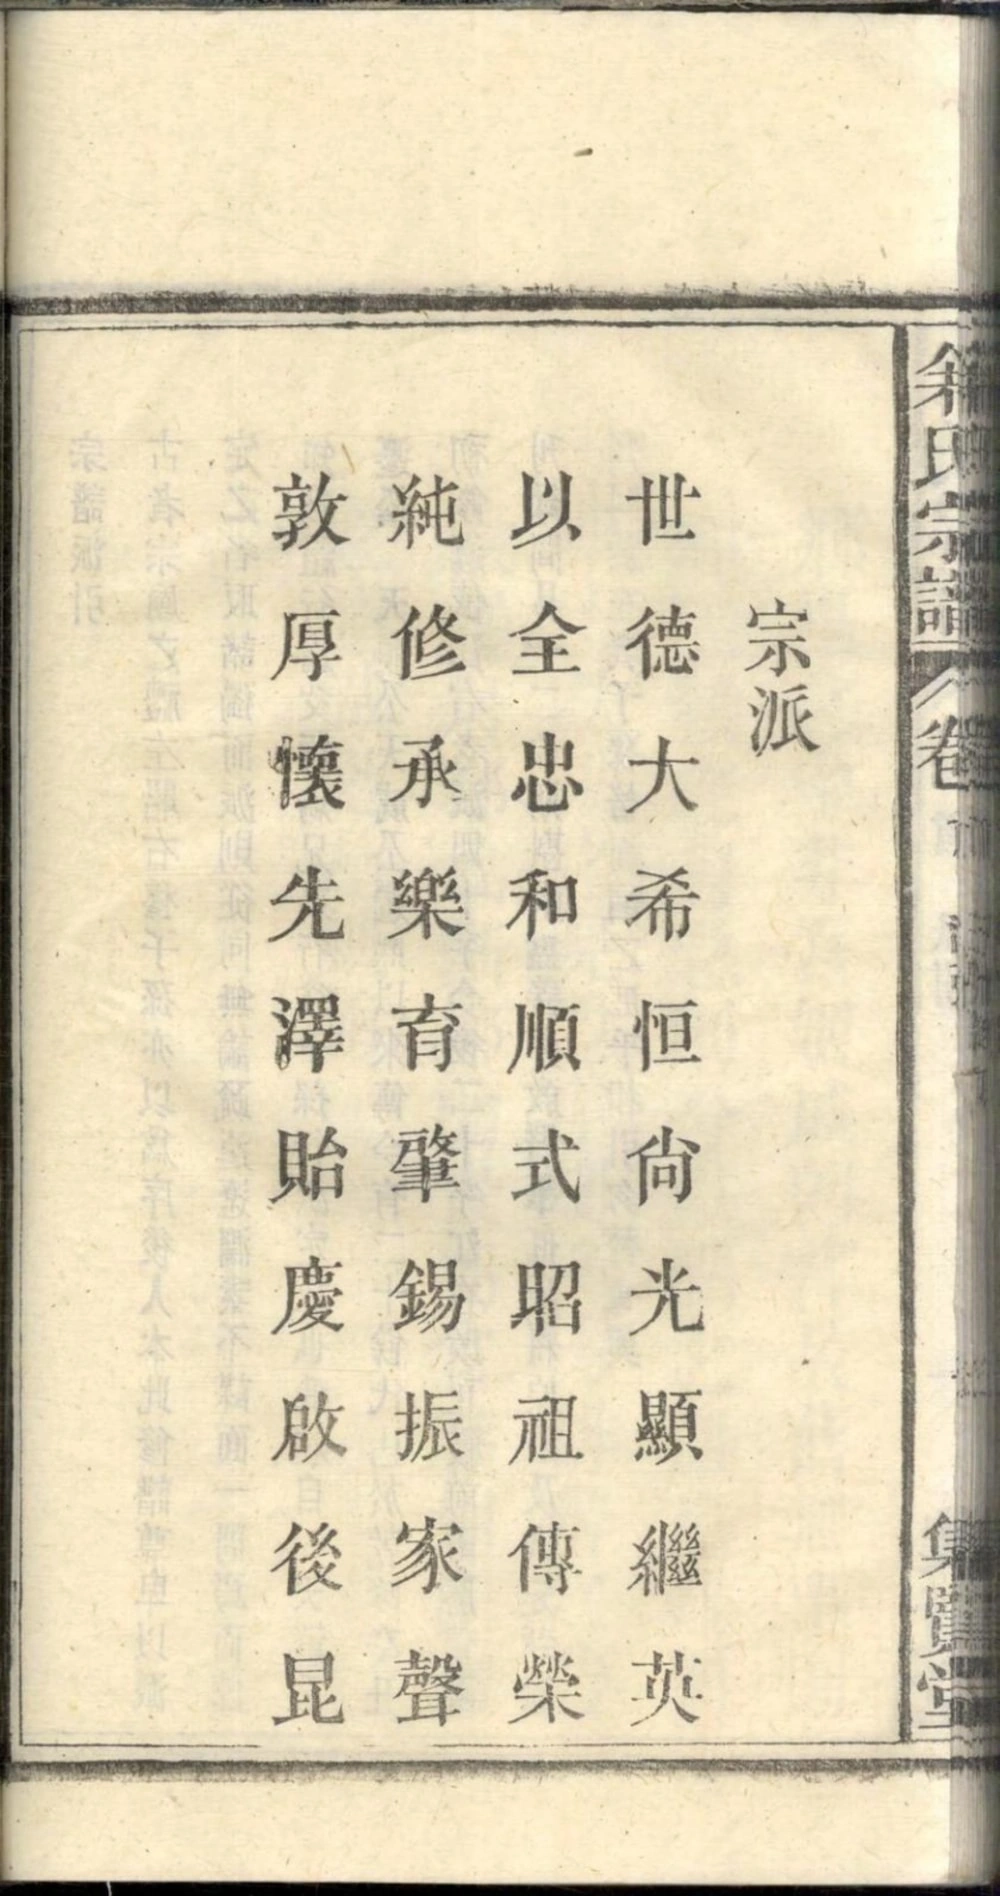 宗派
世德大希恒尙光顯繼英
以全忠和順式昭祖傳榮
純修承樂育肇錫振家聲
敦厚懷先澤貽慶啟後昆
氏宗譜
卷
集覽堂